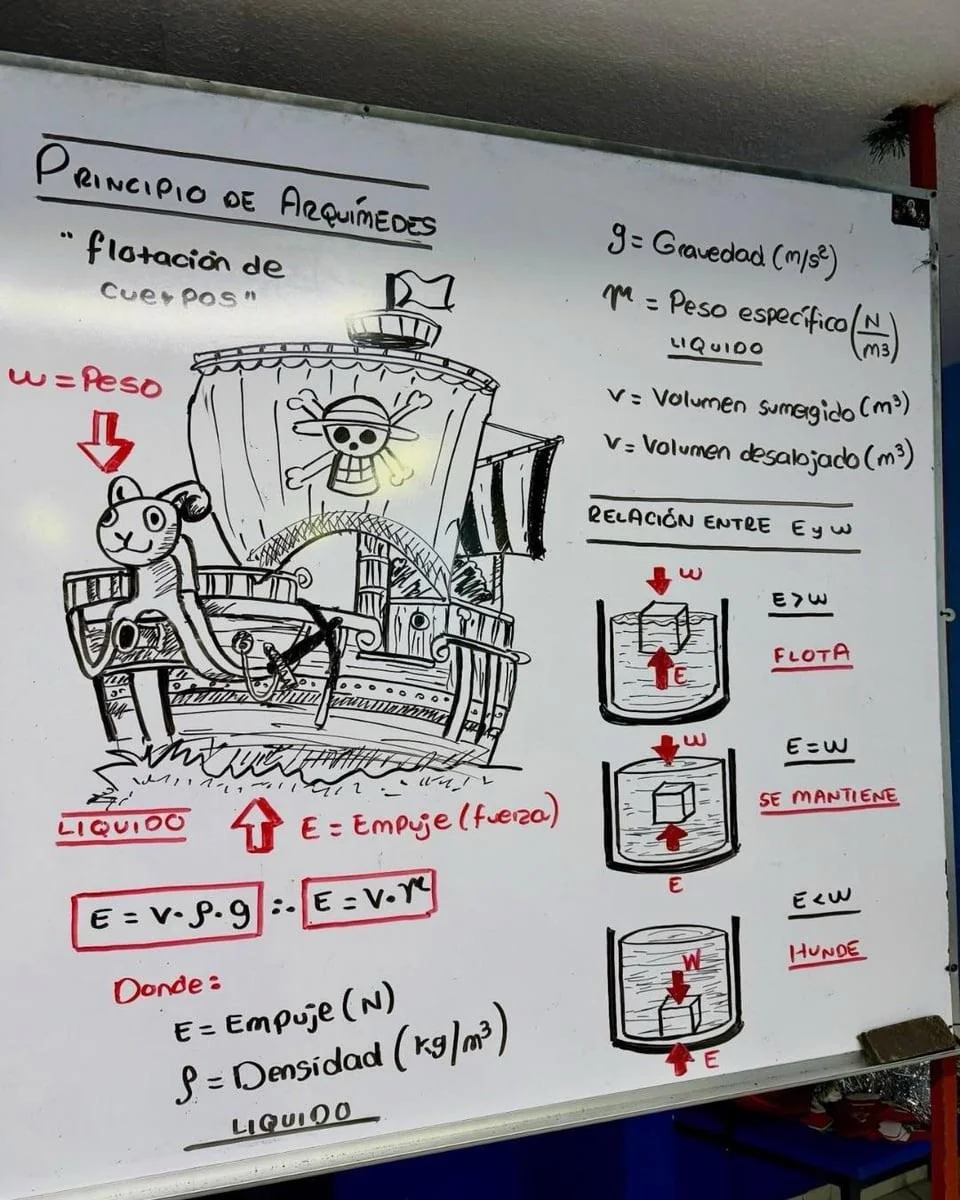 PRINCIPIO DE ARQUÍMEDES
"flotación de
cuerpos"
w = Peso
LIQUIDO
E = Empuje (fuerza)
E = V·ρ·g ∴ E = V·γ
Donde:
E = Empuje (N)
ρ = Densidad (kg/m³)
LIQUIDO
g = Gravedad (m/s²)
γ = Peso específico (N/m³)
LIQUIDO
V = Volumen sumergido (m³)
V = Volumen desalojado (m³)
RELACIÓN ENTRE E y W
W
E>W
E
FLOTA
W
E=W
SE MANTIENE
E
E<W
W
HUNDE
E